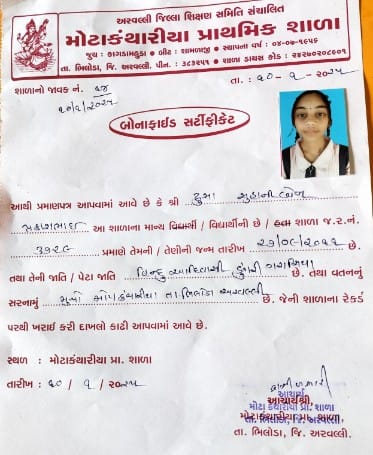 અરવલ્લી જિલ્લા શિક્ષણ સમિતિ સંચાલિત
મોટાકંથારીયા પ્રાથમિક શાળા
જૂથ : કાગડામહુડા • બીટ : શામળાજી • સ્થાપના વર્ષ : ૦૪-૦૭-૧૯૫૬
તા. ભિલોડા, જિ. અરવલ્લી. પીન : ૩૮૩૨૫૫ • શાળા ડાયસ કોડ : ૨૪૨૭૦૨૦૮૯૦૧
શાળાનો જાવક નં.
તા. : ૨૦-૧-૨૦૨૫
બોનાફાઈડ સર્ટીફીકેટ
આથી પ્રમાણપત્ર આપવામાં આવે છે કે શ્રી ડુંગા સુહાનીબેન
આ શાળાના માન્ય વિદ્યાર્થી / વિદ્યાર્થીની છે / હતા શાળા જ.ર.નં.
પ્રમાણે તેમની / તેણીની જન્મ તારીખ છે.
તથા તેની જાતિ / પેટા જાતિ હિન્દુ આદિવાસી ડુંગરી ગરાસિયા છે. તથા વતનનું
સરનામું મુ.પો મોટાકંથારીયા તા.ભિલોડા અરવલ્લી છે. જેની શાળાના રેકર્ડ
પરથી ખરાઈ કરી દાખલો કાઢી આપવામાં આવે છે.
સ્થળ : મોટાકંથારીયા પ્રા. શાળા
તારીખ : ૨૦ / ૧ / ૨૦૨૫
આચાર્ય
મોટા કંથારીયા પ્રા. શાળા
આચાર્યશ્રી,
મોટાકંથારીયા પ્રા. શાળા
તા. ભિલોડા, જિ. અરવલ્લી.